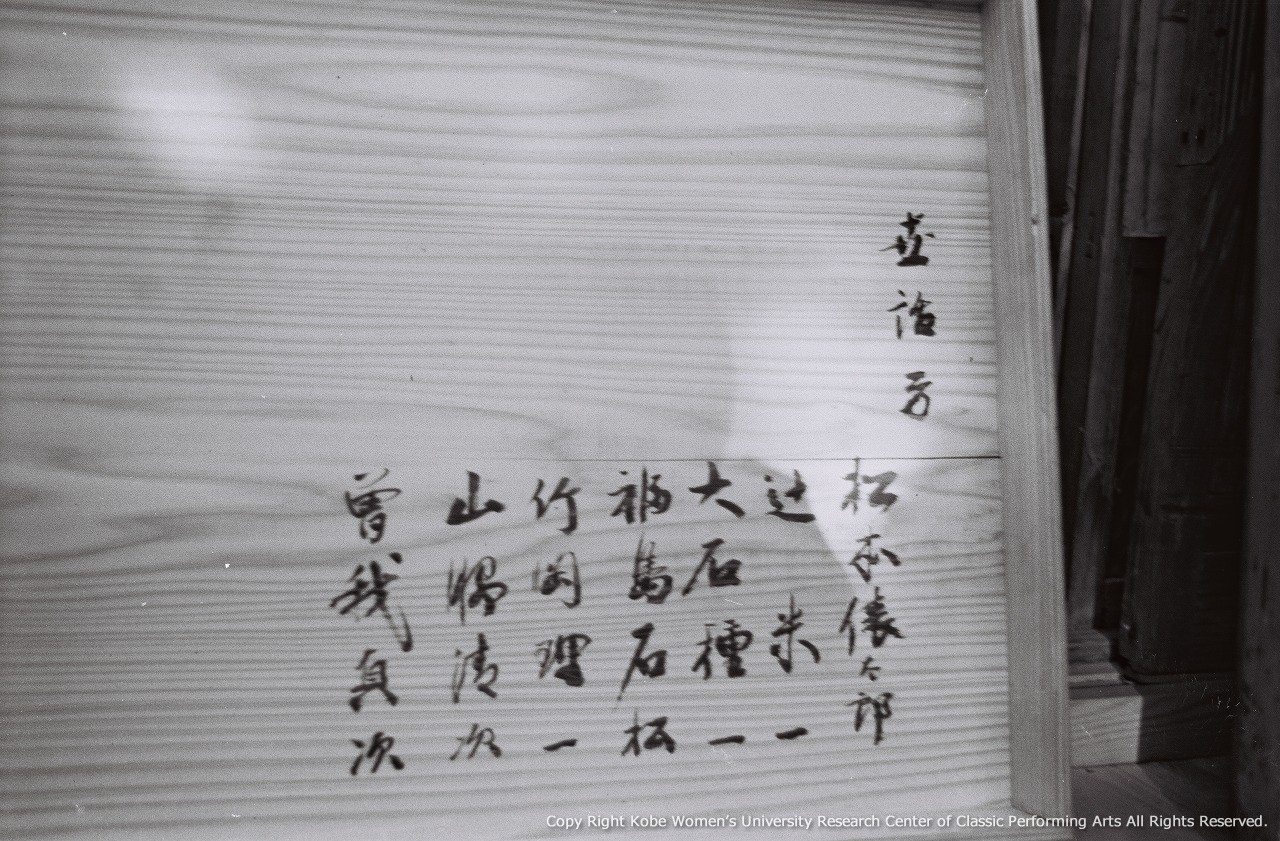 世話方
松本俵太郎
辻米一
大石種一
福島石松
竹岡理一
山婦清次
曽我真次
Copy Right Kobe Women's University Research Center of Classic Performing Arts All Rights Reserved.